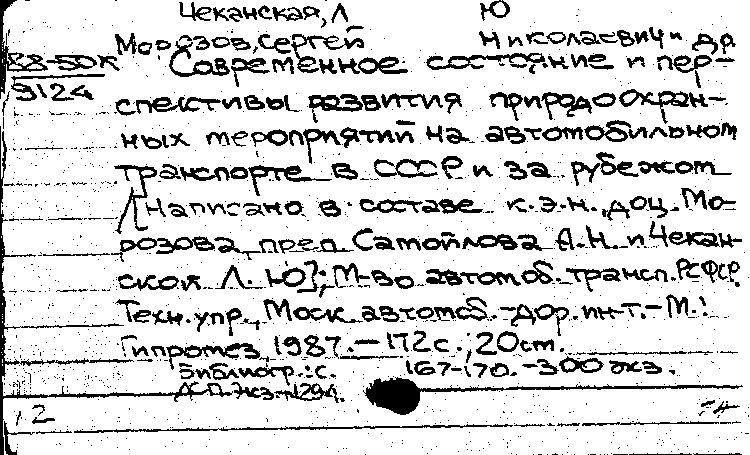 Чеканская, Л Ю
Морозов, Сергей Николаевич и др
88-50к Современное состояние и пер-
9124 спективы развития природоохран-
ных мероприятий на автомобильном
транспорте в СССР и за рубежом
/[Написано в составе к.э.н., доц. Мо-
розова, преп. Самойлова А.Н. и Чекан-
ской Л. Ю]; М-во автомоб. трансп. РСФСР.
Техн. упр., Моск. автомоб.-дор. ин-т.-М.:
Гипротез, 1987.-172с.; 20см.
Библиогр.: с. 167-170. -300 экз.
ДСП. Экз. н1294.
12